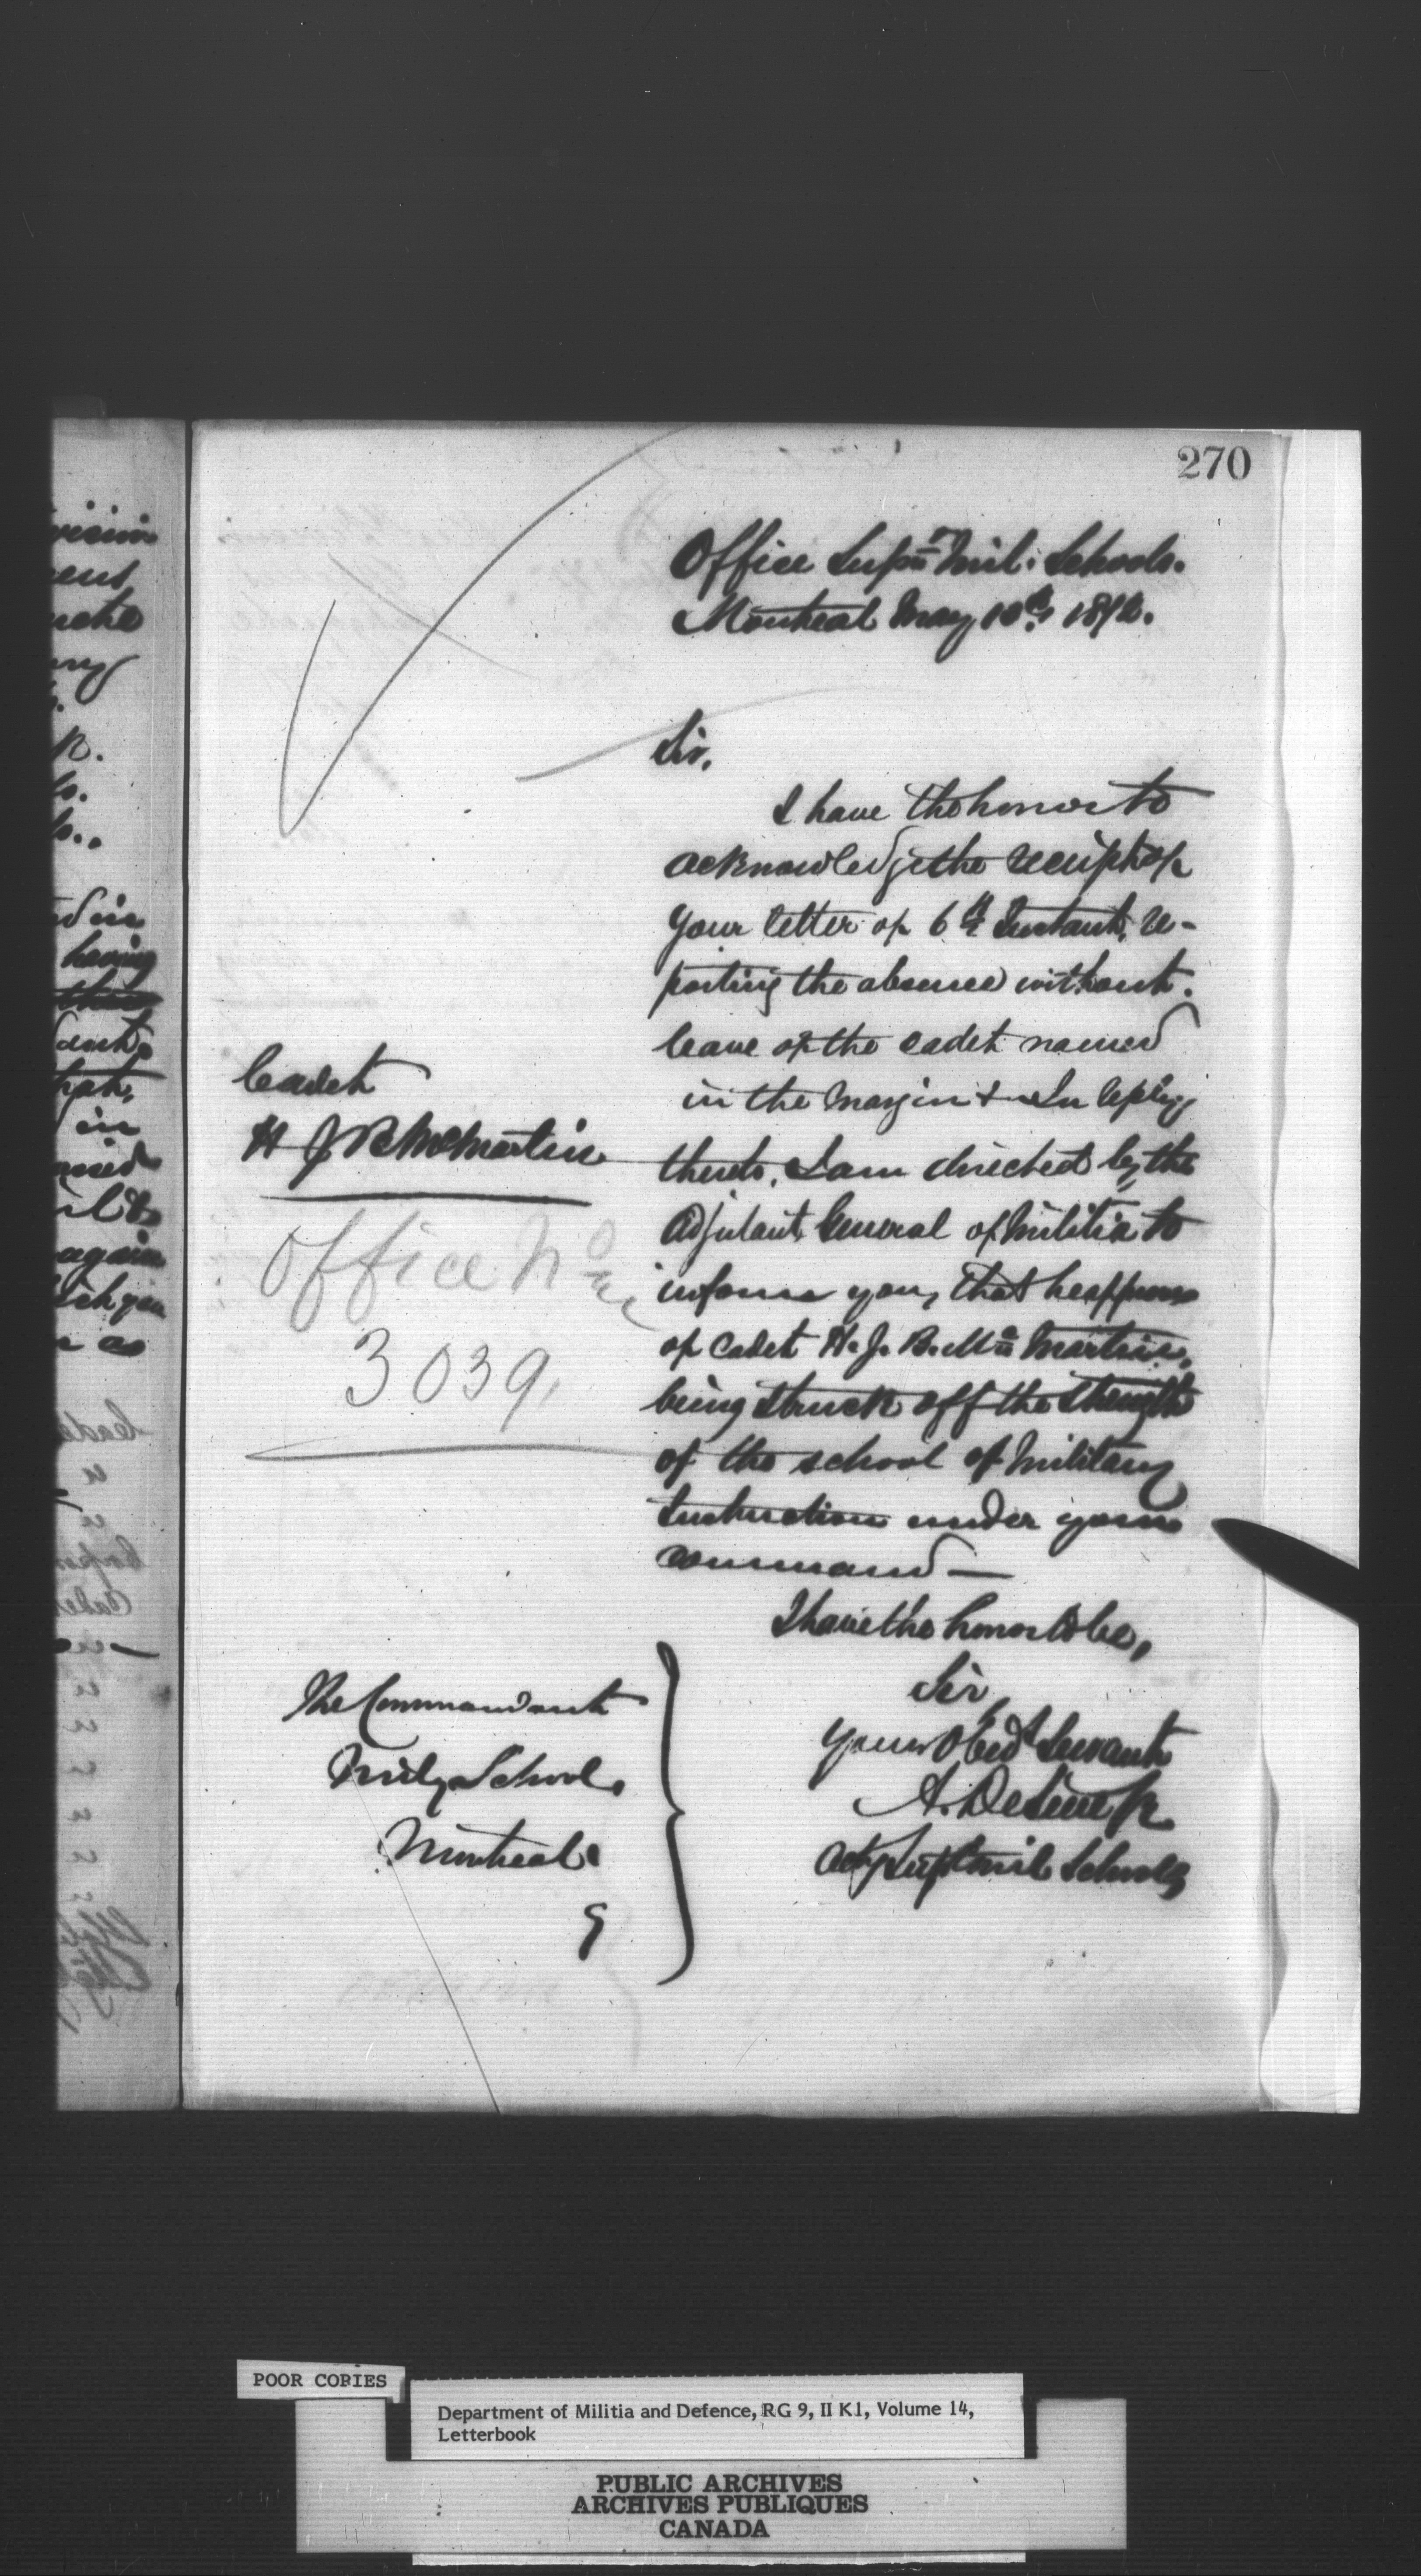 270
Office Supt Mil: Schools.
Montreal May 10th 1872.
Sir,
I have the honor to
acknowledge the receipt of
your letter of 6th Instant, re-
porting the absence without
leave of the cadet named
in the margin & In reply
thereto, I am directed by the
Adjutant General of Militia to
inform you, that he approves
of Cadet H. J. B. Mc Martin,
being struck off the strength
of the school of Military
Instruction under your
command —
I have the honor to be,
Sir,
Your Obedt Servant
Actg Supt Mil Schools
Cadet
H J B McMartin
Office No
3039
The Commandant
Mily School,
Montreal
POOR COPIES
Department of Militia and Defence, RG 9, II K1, Volume 14,
Letterbook
PUBLIC ARCHIVES
ARCHIVES PUBLIQUES
CANADA